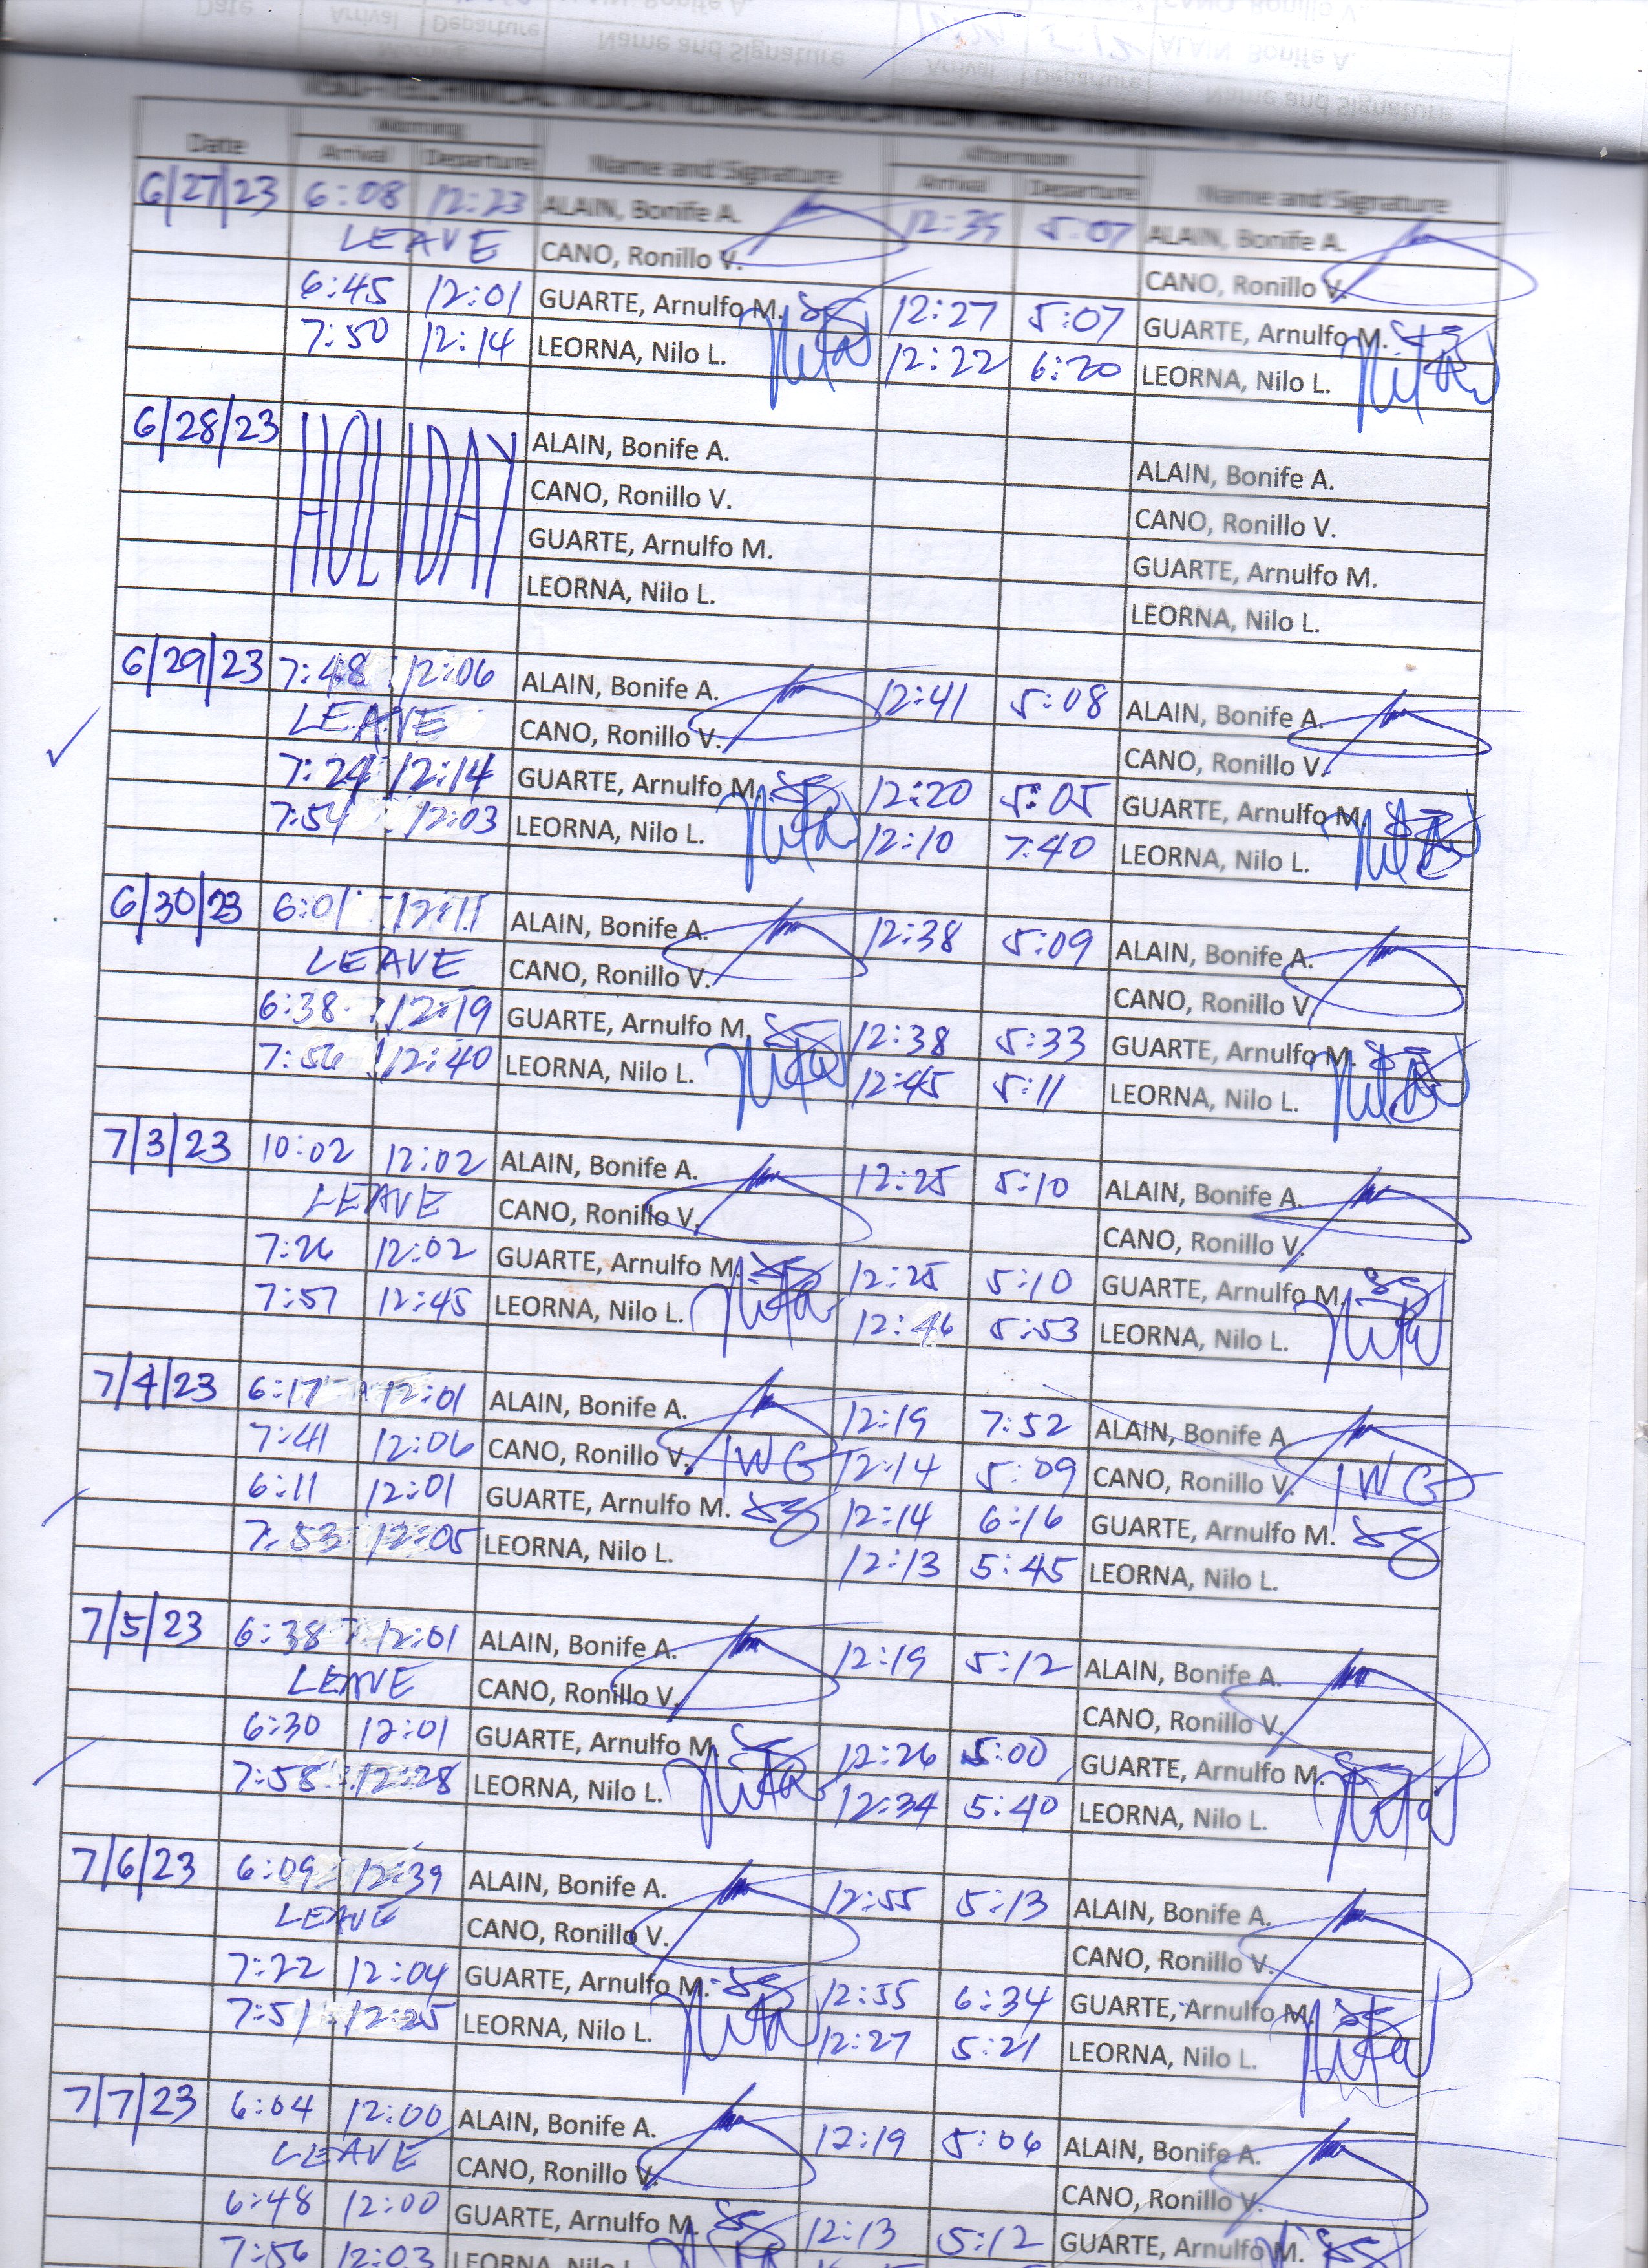 Date Morning Name and Signature Afternoon Name and Signature
Arrival Departure Arrival Departure
6/27/23 6:08 12:23 ALAIN, Bonife A. 12:35 5:07 ALAIN, Bonife A.
LEAVE CANO, Ronillo V. CANO, Ronillo V.
6:45 12:01 GUARTE, Arnulfo M. 12:27 5:07 GUARTE, Arnulfo M.
7:50 12:14 LEORNA, Nilo L. 12:22 6:20 LEORNA, Nilo L.
6/28/23 HOLIDAY ALAIN, Bonife A. ALAIN, Bonife A.
CANO, Ronillo V. CANO, Ronillo V.
GUARTE, Arnulfo M. GUARTE, Arnulfo M.
LEORNA, Nilo L. LEORNA, Nilo L.
6/29/23 7:48 12:06 ALAIN, Bonife A. 12:41 5:08 ALAIN, Bonife A.
LEAVE CANO, Ronillo V. CANO, Ronillo V.
7:24 12:14 GUARTE, Arnulfo M. 12:20 5:05 GUARTE, Arnulfo M.
7:54 12:03 LEORNA, Nilo L. 12:10 7:40 LEORNA, Nilo L.
6/30/23 6:01 12:11 ALAIN, Bonife A. 12:38 5:09 ALAIN, Bonife A.
LEAVE CANO, Ronillo V. CANO, Ronillo V.
6:38 12:19 GUARTE, Arnulfo M. 12:38 5:33 GUARTE, Arnulfo M.
7:56 12:40 LEORNA, Nilo L. 12:45 5:11 LEORNA, Nilo L.
7/3/23 10:02 12:02 ALAIN, Bonife A. 12:25 5:10 ALAIN, Bonife A.
LEAVE CANO, Ronillo V. CANO, Ronillo V.
7:26 12:02 GUARTE, Arnulfo M. 12:25 5:10 GUARTE, Arnulfo M.
7:57 12:45 LEORNA, Nilo L. 12:46 5:53 LEORNA, Nilo L.
7/4/23 6:17 12:01 ALAIN, Bonife A. 12:19 7:52 ALAIN, Bonife A.
7:41 12:06 CANO, Ronillo V. 12:14 5:09 CANO, Ronillo V.
6:11 12:01 GUARTE, Arnulfo M. 12:14 6:16 GUARTE, Arnulfo M.
7:53 12:05 LEORNA, Nilo L. 12:13 5:45 LEORNA, Nilo L.
7/5/23 6:38 12:01 ALAIN, Bonife A. 12:19 5:12 ALAIN, Bonife A.
LEAVE CANO, Ronillo V. CANO, Ronillo V.
6:30 12:01 GUARTE, Arnulfo M. 12:26 5:00 GUARTE, Arnulfo M.
7:58 12:28 LEORNA, Nilo L. 12:34 5:40 LEORNA, Nilo L.
7/6/23 6:09 12:39 ALAIN, Bonife A. 12:55 5:13 ALAIN, Bonife A.
LEAVE CANO, Ronillo V. CANO, Ronillo V.
7:22 12:04 GUARTE, Arnulfo M. 12:35 6:34 GUARTE, Arnulfo M.
7:51 12:25 LEORNA, Nilo L. 12:27 5:21 LEORNA, Nilo L.
7/7/23 6:04 12:00 ALAIN, Bonife A. 12:19 5:06 ALAIN, Bonife A.
LEAVE CANO, Ronillo V. CANO, Ronillo V.
6:48 12:00 GUARTE, Arnulfo M. 12:13 5:12 GUARTE, Arnulfo M.
7:56 12:03 LEORNA, Nilo L.